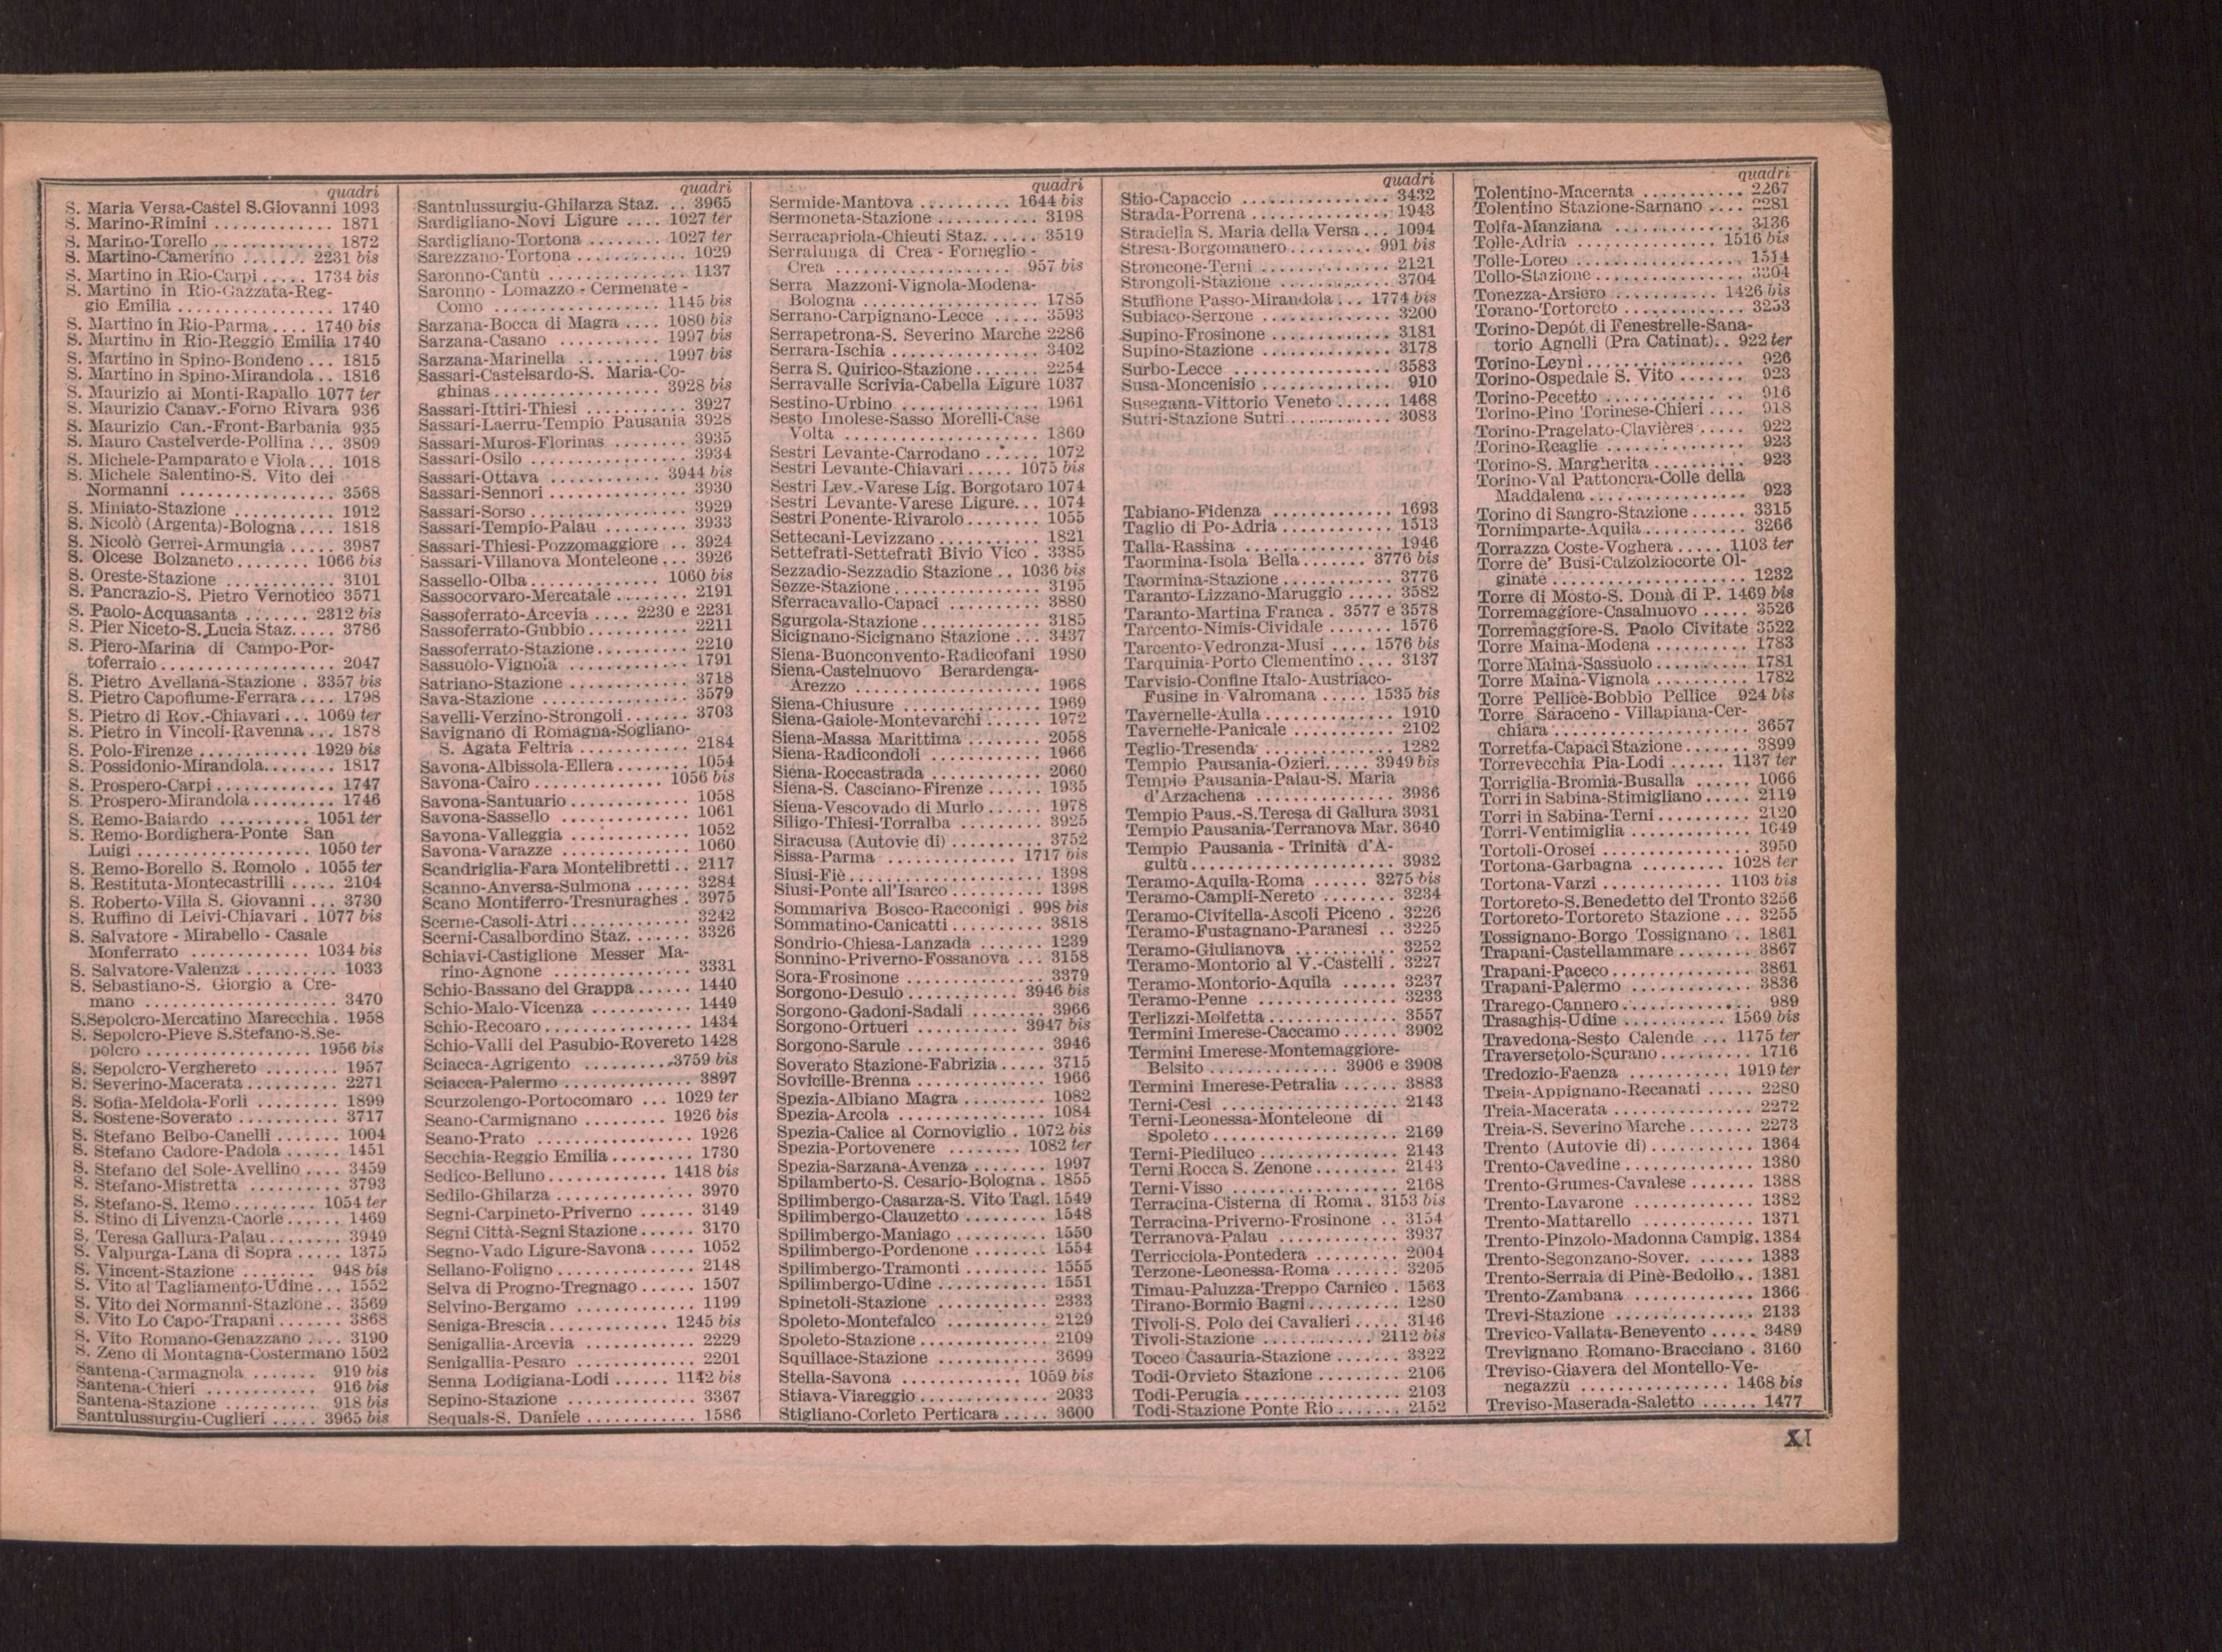 quadri
S. Maria Versa-Castel S.Giovanni 1093
S. Marino-Rimini ............. 1871
S. Marino-Torello ............. 1872
S. Martino-Camerino ....... 2231 bis
S. Martino in Rio-Carpi ..... 1734 bis
S. Martino in Rio-Gazzata-Reg-
gio Emilia ................. 1740
S. Martino in Rio-Parma .... 1740 bis
S. Martino in Rio-Reggio Emilia 1740
S. Martino in Spino-Bondeno ... 1815
S. Martino in Spino-Mirandola .. 1816
S. Maurizio ai Monti-Rapallo 1077 ter
S. Maurizio Canav.-Forno Rivara 936
S. Maurizio Can.-Front-Barbania 935
S. Mauro Castelverde-Pollina ... 3809
S. Michele-Pamparato e Viola ... 1018
S. Michele Salentino-S. Vito dei
Normanni ................. 3568
S. Miniato-Stazione ........... 1912
S. Nicolò (Argenta)-Bologna .... 1818
S. Nicolò Gerrei-Armungia ..... 3987
S. Olcese Bolzaneto ........ 1066 bis
S. Oreste-Stazione ............ 3101
S. Pancrazio-S. Pietro Vernotico 3571
S. Paolo-Acquasanta ....... 2312 bis
S. Pier Niceto-S. Lucia Staz. .... 3786
S. Piero-Marina di Campo-Por-
toferraio ................... 2047
S. Pietro Avellana-Stazione . 3357 bis
S. Pietro Capofiume-Ferrara .... 1798
S. Pietro di Rov.-Chiavari ... 1069 ter
S. Pietro in Vincoli-Ravenna ... 1878
S. Polo-Firenze ........... 1929 bis
S. Possidonio-Mirandola........ 1817
S. Prospero-Carpi ............. 1747
S. Prospero-Mirandola ......... 1746
S. Remo-Baiardo .......... 1051 ter
S. Remo-Bordighera-Ponte San
Luigi ................... 1050 ter
S. Remo-Borello S. Romolo . 1055 ter
S. Restituta-Montecastrilli ..... 2104
S. Roberto-Villa S. Giovanni ... 3730
S. Ruffino di Leivi-Chiavari . 1077 bis
S. Salvatore - Mirabello - Casale
Monferrato ............. 1034 bis
S. Salvatore-Valenza .......... 1033
S. Sebastiano-S. Giorgio a Cre-
mano ..................... 3470
S.Sepolcro-Mercatino Marecchia . 1958
S. Sepolcro-Pieve S.Stefano-S.Se-
polcro .................. 1956 bis
S. Sepolcro-Verghereto ........ 1957
S. Severino-Macerata .......... 2271
S. Sofia-Meldola-Forlì ......... 1899
S. Sostene-Soverato ........... 3717
S. Stefano Belbo-Canelli ....... 1004
S. Stefano Cadore-Padola ...... 1451
S. Stefano del Sole-Avellino .... 3459
S. Stefano-Mistretta .......... 3793
S. Stefano-S. Remo ......... 1054 ter
S. Stino di Livenza-Caorle ...... 1469
S. Teresa Gallura-Palau ........ 3949
S. Valpurga-Lana di Sopra ..... 1375
S. Vincent-Stazione ........ 948 bis
S. Vito al Tagliamento-Udine ... 1552
S. Vito dei Normanni-Stazione .. 3569
S. Vito Lo Capo-Trapani ....... 3868
S. Vito Romano-Genazzano .... 3190
S. Zeno di Montagna-Costermano 1502
Santena-Carmagnola ....... 919 bis
Santena-Chieri ............ 916 bis
Santena-Stazione .......... 918 bis
Santulussurgiu-Cuglieri ..... 3965 bis
quadri
Santulussurgiu-Ghilarza Staz. .. 3965
Sardigliano-Novi Ligure .... 1027 ter
Sardigliano-Tortona ........ 1027 ter
Sarezzano-Tortona ............ 1029
Saronno-Cantù ............... 1137
Saronno - Lomazzo - Cermenate -
Como .................. 1145 bis
Sarzana-Bocca di Magra .... 1080 bis
Sarzana-Casano ........... 1997 bis
Sarzana-Marinella ......... 1997 bis
Sassari-Castelsardo-S. Maria-Co-
ghinas .................. 3928 bis
Sassari-Ittiri-Thiesi ........... 3927
Sassari-Laerru-Tempio Pausania 3928
Sassari-Muros-Florinas ........ 3935
Sassari-Osilo ................. 3934
Sassari-Ottava ............ 3944 bis
Sassari-Sennori ............... 3930
Sassari-Sorso ................. 3929
Sassari-Tempio-Palau ......... 3933
Sassari-Thiesi-Pozzomaggiore .. 3924
Sassari-Villanova Monteleone ... 3926
Sassello-Olba .............. 1060 bis
Sassocorvaro-Mercatale ........ 2191
Sassoferrato-Arcevia .... 2230 e 2231
Sassoferrato-Gubbio ........... 2211
Sassoferrato-Stazione .......... 2210
Sassuolo-Vignola ............. 1791
Satriano-Stazione ............. 3718
Sava-Stazione ................ 3579
Savelli-Verzino-Strongoli ....... 3703
Savignano di Romagna-Sogliano-
S. Agata Feltria ............ 2184
Savona-Albissola-Ellera ........ 1054
Savona-Cairo .............. 1056 bis
Savona-Santuario ............. 1058
Savona-Sassello .............. 1061
Savona-Valleggia ............. 1052
Savona-Varazze .............. 1060
Scandriglia-Fara Montelibretti .. 2117
Scanno-Anversa-Sulmona ...... 3284
Scano Montiferro-Tresnuraghes . 3975
Scerne-Casoli-Atri ............. 3242
Scerni-Casalbordino Staz. ...... 3326
Schiavi-Castiglione Messer Ma-
rino-Agnone ............... 3331
Schio-Bassano del Grappa ...... 1440
Schio-Malo-Vicenza ........... 1449
Schio-Recoaro ................ 1434
Schio-Valli del Pasubio-Rovereto 1428
Sciacca-Agrigento .......... 3759 bis
Sciacca-Palermo .............. 3897
Scurzolengo-Portocomaro ... 1029 ter
Seano-Carmignano ......... 1926 bis
Seano-Prato ................. 1926
Secchia-Reggio Emilia ......... 1730
Sedico-Belluno ............. 1418 bis
Sedilo-Ghilarza ............... 3970
Segni-Carpineto-Priverno ...... 3149
Segni Città-Segni Stazione ...... 3170
Segno-Vado Ligure-Savona ..... 1052
Sellano-Foligno ............... 2148
Selva di Progno-Tregnago ...... 1507
Selvino-Bergamo ............. 1199
Seniga-Brescia ............. 1245 bis
Senigallia-Arcevia ............ 2229
Senigallia-Pesaro ............. 2201
Senna Lodigiana-Lodi ...... 1142 bis
Sepino-Stazione .............. 3367
Sequals-S. Daniele ............ 1586
quadri
Sermide-Mantova .......... 1644 bis
Sermoneta-Stazione ........... 3198
Serracapriola-Chieuti Staz. ..... 3519
Serralunga di Crea - Forneglio -
Crea ................... 957 bis
Serra Mazzoni-Vignola-Modena-
Bologna ................... 1785
Serrano-Carpignano-Lecce ..... 3593
Serrapetrona-S. Severino Marche 2286
Serrara-Ischia ................ 3402
Serra S. Quirico-Stazione ....... 2254
Serravalle Scrivia-Cabella Ligure 1037
Sestino-Urbino ............... 1961
Sesto Imolese-Sasso Morelli-Case
Volta ..................... 1860
Sestri Levante-Carrodano ...... 1072
Sestri Levante-Chiavari ..... 1075 bis
Sestri Lev.-Varese Lig. Borgotaro 1074
Sestri Levante-Varese Ligure... 1074
Sestri Ponente-Rivarolo........ 1055
Settecani-Levizzano ........... 1821
Settefrati-Settefrati Bivio Vico . 3385
Sezzadio-Sezzadio Stazione .. 1036 bis
Sezze-Stazione ................ 3195
Sferracavallo-Capaci .......... 3880
Sgurgola-Stazione ............. 3185
Sicignano-Sicignano Stazione ... 3437
Siena-Buonconvento-Radicofani 1980
Siena-Castelnuovo Berardenga-
Arezzo .................... 1968
Siena-Chiusure ............... 1969
Siena-Gaiole-Montevarchi ...... 1972
Siena-Massa Marittima ........ 2058
Siena-Radicondoli ............ 1966
Siena-Roccastrada ............ 2060
Siena-S. Casciano-Firenze ...... 1935
Siena-Vescovado di Murlo ...... 1978
Siligo-Thiesi-Torralba ......... 3925
Siracusa (Autovie di) .......... 3752
Sissa-Parma .............. 1717 bis
Siusi-Fiè ..................... 1398
Siusi-Ponte all'Isarco .......... 1398
Sommariva Bosco-Racconigi . 998 bis
Sommatino-Canicattì .......... 3818
Sondrio-Chiesa-Lanzada ....... 1239
Sonnino-Priverno-Fossanova ... 3158
Sora-Frosinone ............... 3379
Sorgono-Desulo ............ 3946 bis
Sorgono-Gadoni-Sadali ........ 3966
Sorgono-Ortueri ........... 3947 bis
Sorgono-Sarule ............... 3946
Soverato Stazione-Fabrizia ..... 3715
Sovicille-Brenna .............. 1966
Spezia-Albiano Magra ......... 1082
Spezia-Arcola ................ 1084
Spezia-Calice al Cornoviglio . 1072 bis
Spezia-Portovenere ........ 1082 ter
Spezia-Sarzana-Avenza ........ 1997
Spilamberto-S. Cesario-Bologna . 1855
Spilimbergo-Casarza-S. Vito Tagl. 1549
Spilimbergo-Clauzetto ......... 1548
Spilimbergo-Maniago .......... 1550
Spilimbergo-Pordenone ........ 1554
Spilimbergo-Tramonti ......... 1555
Spilimbergo-Udine ............ 1551
Spinetoli-Stazione ............ 2333
Spoleto-Montefalco ........... 2129
Spoleto-Stazione .............. 2109
Squillace-Stazione ............ 3699
Stella-Savona ............ 1059 bis
Stiava-Viareggio .............. 2033
Stigliano-Corleto Perticara ..... 3600
quadri
Stio-Capaccio ................ 3432
Strada-Porrena ............... 1943
Stradella S. Maria della Versa ... 1094
Stresa-Borgomanero ......... 991 bis
Stroncone-Terni .............. 2121
Strongoli-Stazione ............ 3704
Stuffione Passo-Mirandola ... 1774 bis
Subiaco-Serrone .............. 3200
Supino-Frosinone ............. 3181
Supino-Stazione .............. 3178
Surbo-Lecce ................. 3583
Susa-Moncenisio .............. 910
Susegana-Vittorio Veneto ...... 1468
Sutri-Stazione Sutri ............ 3083
Tabiano-Fidenza ............. 1693
Taglio di Po-Adria ............ 1513
Talla-Rassina ................. 1946
Taormina-Isola Bella ....... 3776 bis
Taormina-Stazione ............ 3776
Taranto-Lizzano-Maruggio ..... 3582
Taranto-Martina Franca . 3577 e 3578
Tarcento-Nimis-Cividale ....... 1576
Tarcento-Vedronza-Musi .... 1576 bis
Tarquinia-Porto Clementino .... 3137
Tarvisio-Confine Italo-Austriaco-
Fusine in Valromana ..... 1535 bis
Tavernelle-Aulla .............. 1910
Tavernelle-Panicale ........... 2102
Teglio-Tresenda .............. 1282
Tempio Pausania-Ozieri..... 3949 bis
Tempio Pausania-Palau-S. Maria
d'Arzachena ............... 3936
Tempio Paus.-S.Teresa di Gallura 3931
Tempio Pausania-Terranova Mar. 3640
Tempio Pausania - Trinità d'A-
gultù ...................... 3932
Teramo-Aquila-Roma ...... 3275 bis
Teramo-Campli-Nereto ........ 3234
Teramo-Civitella-Ascoli Piceno . 3226
Teramo-Fustagnano-Paranesi .. 3225
Teramo-Giulianova ........... 3252
Teramo-Montorio al V.-Castelli . 3227
Teramo-Montorio-Aquila ...... 3237
Teramo-Penne ............... 3233
Terlizzi-Molfetta .............. 3557
Termini Imerese-Caccamo ...... 3902
Termini Imerese-Montemaggiore-
Belsito .............. 3906 e 3908
Termini Imerese-Petralia ...... 3883
Terni-Cesi ................... 2143
Terni-Leonessa-Monteleone di
Spoleto .................... 2169
Terni-Piediluco ............... 2143
Terni Rocca S. Zenone ......... 2143
Terni-Visso .................. 2168
Terracina-Cisterna di Roma . 3153 bis
Terracina-Priverno-Frosinone .. 3154
Terranova-Palau ............. 3937
Terricciola-Pontedera ......... 2004
Terzone-Leonessa-Roma ....... 3205
Timau-Paluzza-Treppo Carnico . 1563
Tirano-Bormio Bagni .......... 1280
Tivoli-S. Polo dei Cavalieri ..... 3146
Tivoli-Stazione ............ 2112 bis
Tocco Casauria-Stazione ....... 3322
Todi-Orvieto Stazione ......... 2106
Todi-Perugia ................. 2103
Todi-Stazione Ponte Rio ....... 2152
quadri
Tolentino-Macerata ........... 2267
Tolentino Stazione-Sarnano .... 2281
Tolfa-Manziana .............. 3136
Tolle-Adria ............... 1516 bis
Tolle-Loreo .................. 1514
Tollo-Stazione ................ 3304
Tonezza-Arsiero ........... 1426 bis
Torano-Tortoreto ............. 3253
Torino-Depôt di Fenestrelle-Sana-
torio Agnelli (Pra Catinat).. 922 ter
Torino-Leynì ................. 926
Torino-Ospedale S. Vito ....... 923
Torino-Pecetto ............... 916
Torino-Pino Torinese-Chieri .... 918
Torino-Pragelato-Clavières ..... 922
Torino-Reaglie ................ 923
Torino-S. Margherita .......... 923
Torino-Val Pattonera-Colle della
Maddalena ................. 923
Torino di Sangro-Stazione ...... 3315
Tornimparte-Aquila ........... 3266
Torrazza Coste-Voghera ..... 1103 ter
Torre de' Busi-Calzolziocorte Ol-
ginate ..................... 1232
Torre di Mosto-S. Donà di P. 1469 bis
Torremaggiore-Casalnuovo ..... 3526
Torremaggiore-S. Paolo Civitate 3522
Torre Maina-Modena .......... 1783
Torre Maina-Sassuolo .......... 1781
Torre Maina-Vignola .......... 1782
Torre Pellice-Bobbio Pellice 924 bis
Torre Saraceno - Villapiana-Cer-
chiara ..................... 3657
Torretta-Capaci Stazione ....... 3899
Torrevecchia Pia-Lodi ...... 1137 ter
Torriglia-Bromia-Busalla ...... 1066
Torri in Sabina-Stimigliano ..... 2119
Torri in Sabina-Terni .......... 2120
Torri-Ventimiglia ............. 1049
Tortolì-Orosei ................ 3950
Tortona-Garbagna ......... 1028 ter
Tortona-Varzi ............. 1103 bis
Tortoreto-S.Benedetto del Tronto 3256
Tortoreto-Tortoreto Stazione ... 3255
Tossignano-Borgo Tossignano .. 1861
Trapani-Castellammare ........ 3867
Trapani-Paceco ............... 3861
Trapani-Palermo ............. 3836
Trarego-Cannero .............. 989
Trasaghis-Udine ........... 1569 bis
Travedona-Sesto Calende ... 1175 ter
Traversetolo-Scurano .......... 1716
Tredozio-Faenza ........... 1919 ter
Treia-Appignano-Recanati ..... 2280
Treia-Macerata ............... 2272
Treia-S. Severino Marche ....... 2273
Trento (Autovie di) ........... 1364
Trento-Cavedine .............. 1380
Trento-Grumes-Cavalese ....... 1388
Trento-Lavarone ............. 1382
Trento-Mattarello ............ 1371
Trento-Pinzolo-Madonna Campig. 1384
Trento-Segonzano-Sover. ...... 1383
Trento-Serraia di Pinè-Bedollo .. 1381
Trento-Zambana ............. 1366
Trevi-Stazione ................ 2133
Trevico-Vallata-Benevento ..... 3489
Trevignano Romano-Bracciano . 3160
Treviso-Giavera del Montello-Ve-
negazzù ................ 1468 bis
Treviso-Maserada-Saletto ...... 1477
XI